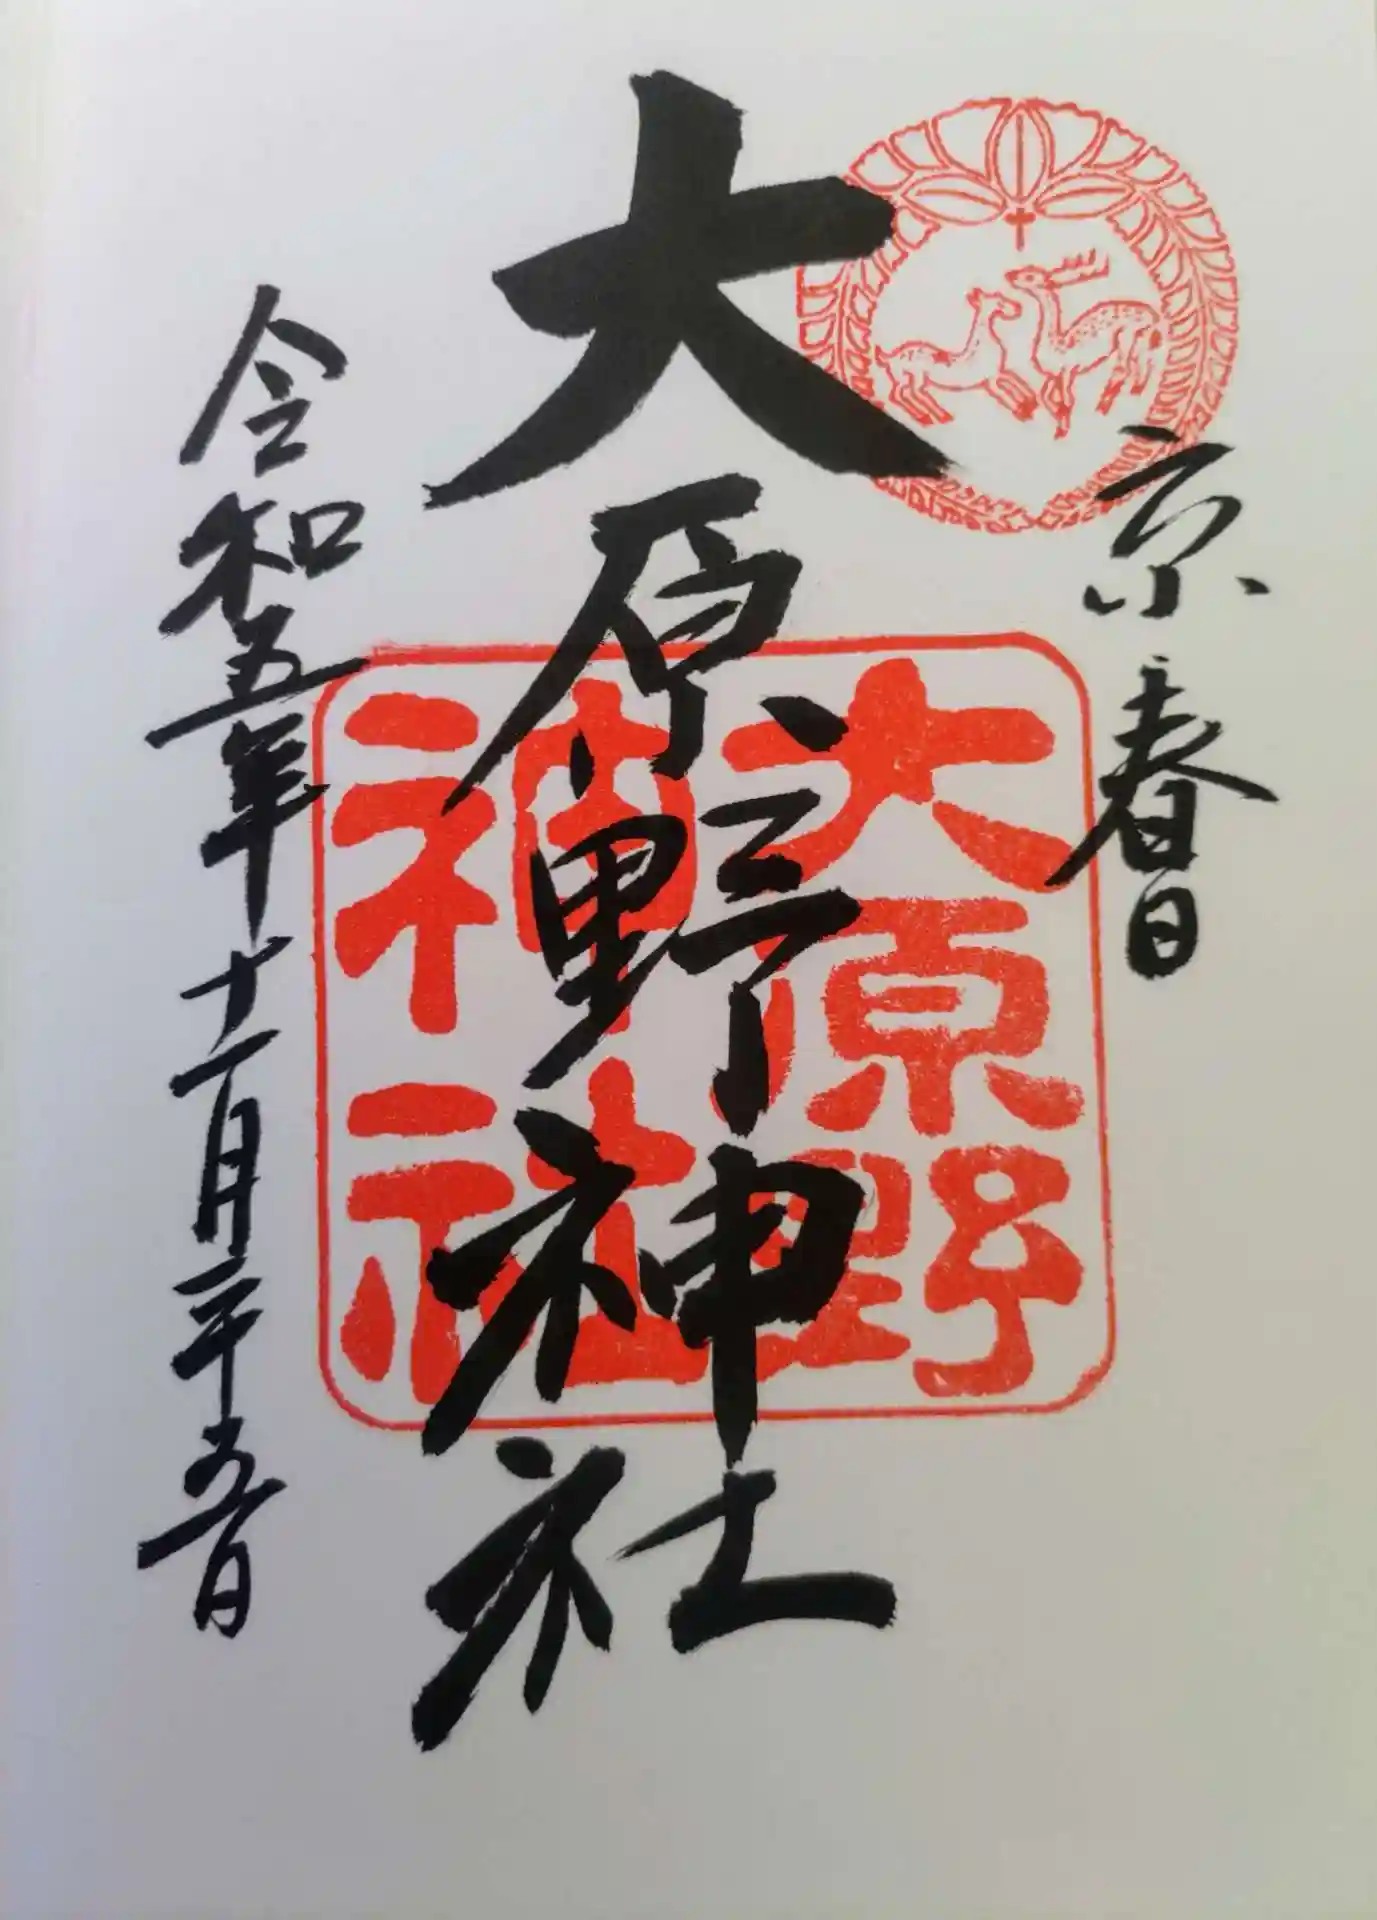 京春日
大原野神社
大原野
神社
令和五年十一月二十五日